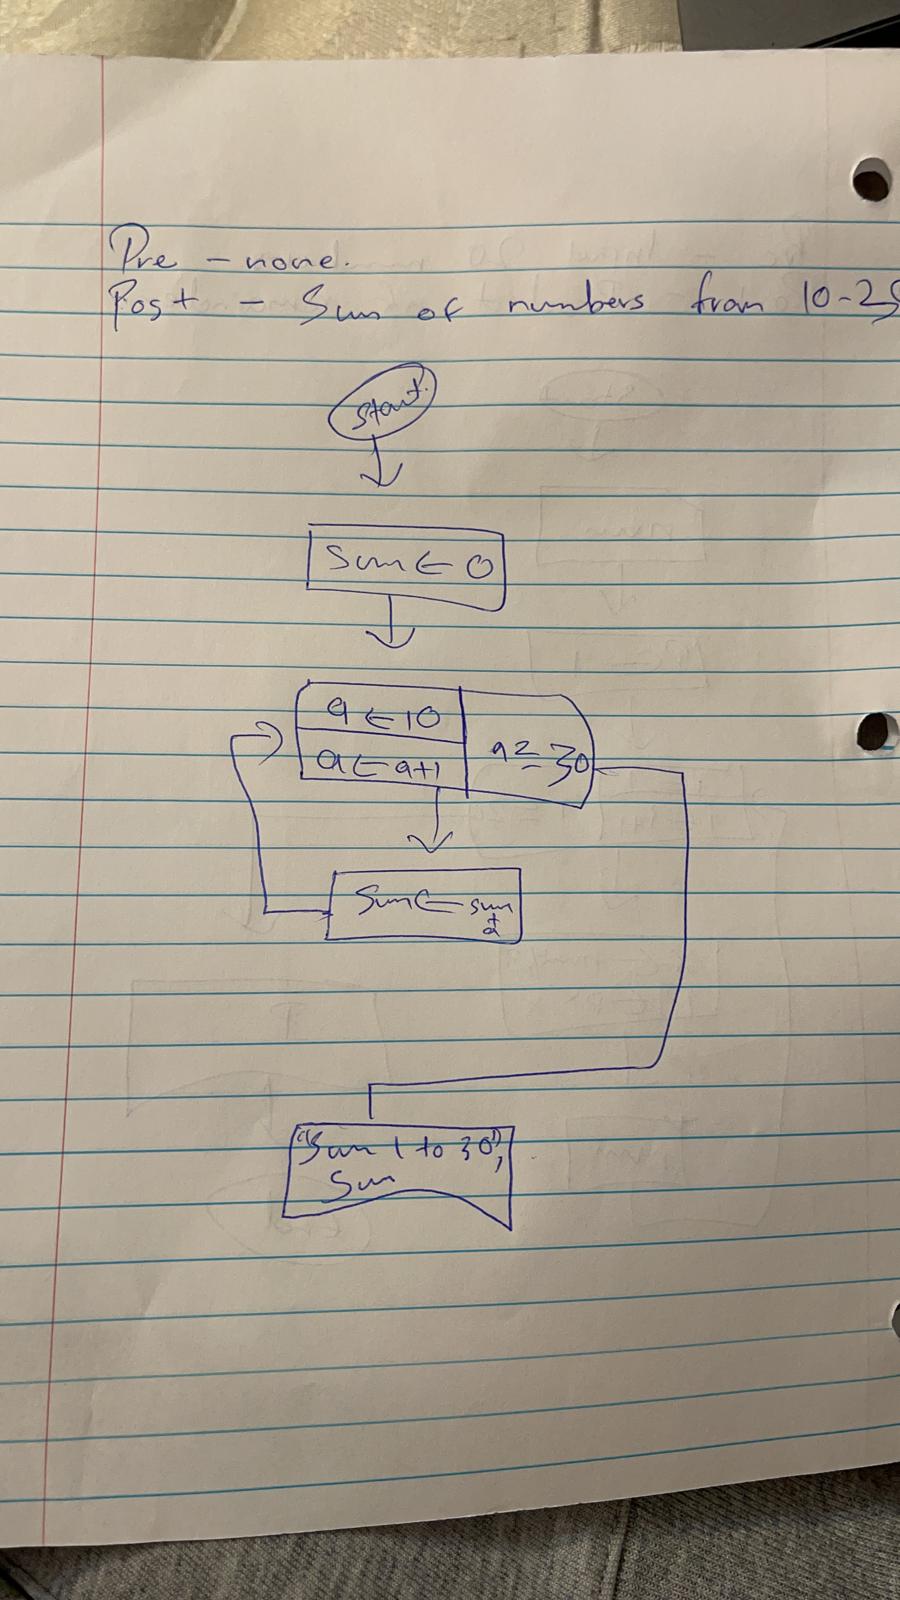 Pre - none.
Post - Sum of numbers from 10-29
Start.
Sum ← 0
a ← 10
a ← a+1
a ≥ 30
Sum ← sum
+
a
"Sum 1 to 30",
Sum